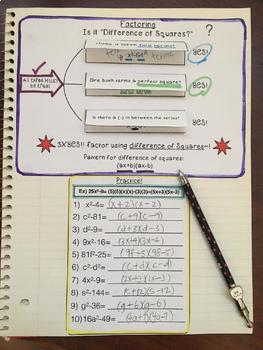 Factoring
Is it "Difference of Squares?" ?
yes!
All three MUST be true!
Are both terms a perfect square? yes!
Is there a (-) in between the terms? yes!
3X yes!! factor using difference of Squares-!
Pattern for difference of squares:
(ax+b)(ax-b)
Practice!
Ex) 25x²-9= (5)(5)(x)(x)-(3)(3)=(5x+3)(5x-3)
1) x²-4= (x+2)(x-2)
2) c²-81= (c+9)(c-9)
3) d²-9= (d+3)(d-3)
4) 9x²-16= (3x+4)(3x-4)
5) 81f²-25= (9f+5)(9f-5)
6) c²-d²= (c+d)(c-d)
7) 4x²-9= (2x+3)(2x-3)
8) s²-144=
9) g²-36= (g+6)(g-6)
10) 16a²-49= (4a+7)(4a-7)